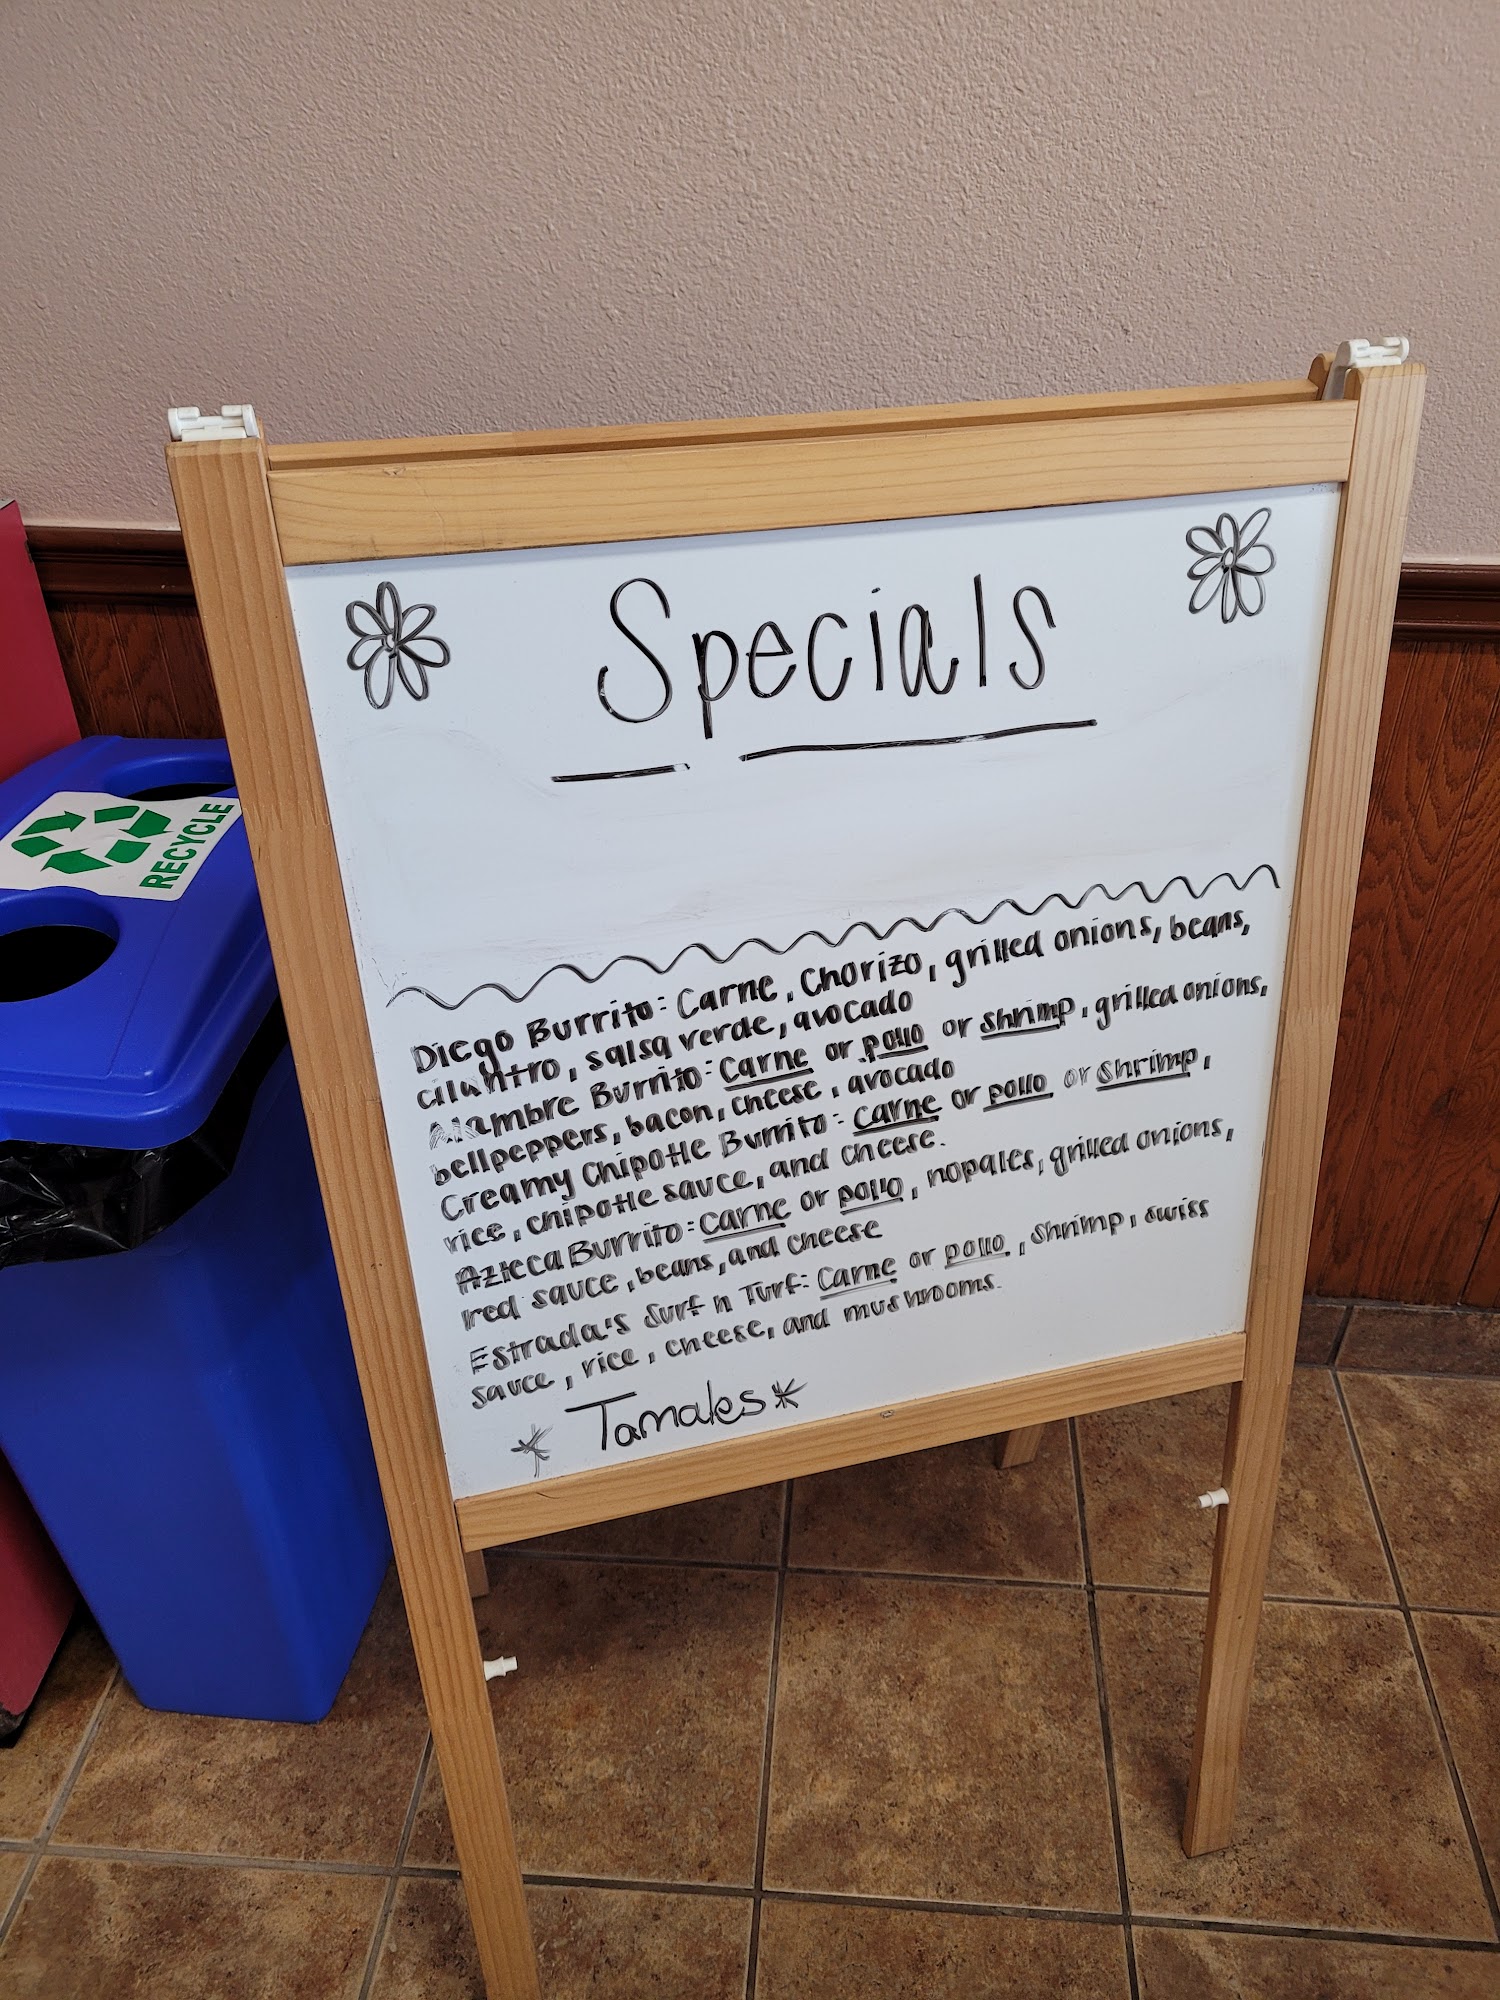 Specials
Diego Burrito: Carne, Chorizo, grilled onions, beans,
cilantro, salsa verde, avocado
Alambre Burrito: Carne or pollo or shrimp, grilled onions,
bellpeppers, bacon, cheese, avocado
Creamy Chipotle Burrito: Carne or pollo or shrimp,
rice, chipotle sauce, and cheese.
Azteca Burrito: Carne or pollo, nopales, grilled onions,
red sauce, beans, and cheese
Estrada's Surf n Turf: Carne or pollo, shrimp, swiss
sauce, rice, cheese, and mushrooms.
* Tamales *
RECYCLE